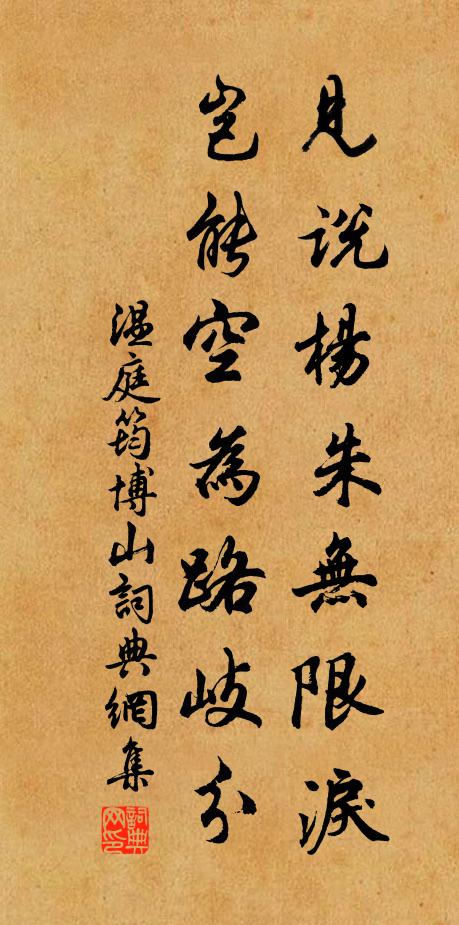 見説楊朱無限淚
豈能空為路岐分
溫庭筠博山詞典網集
詞典网印